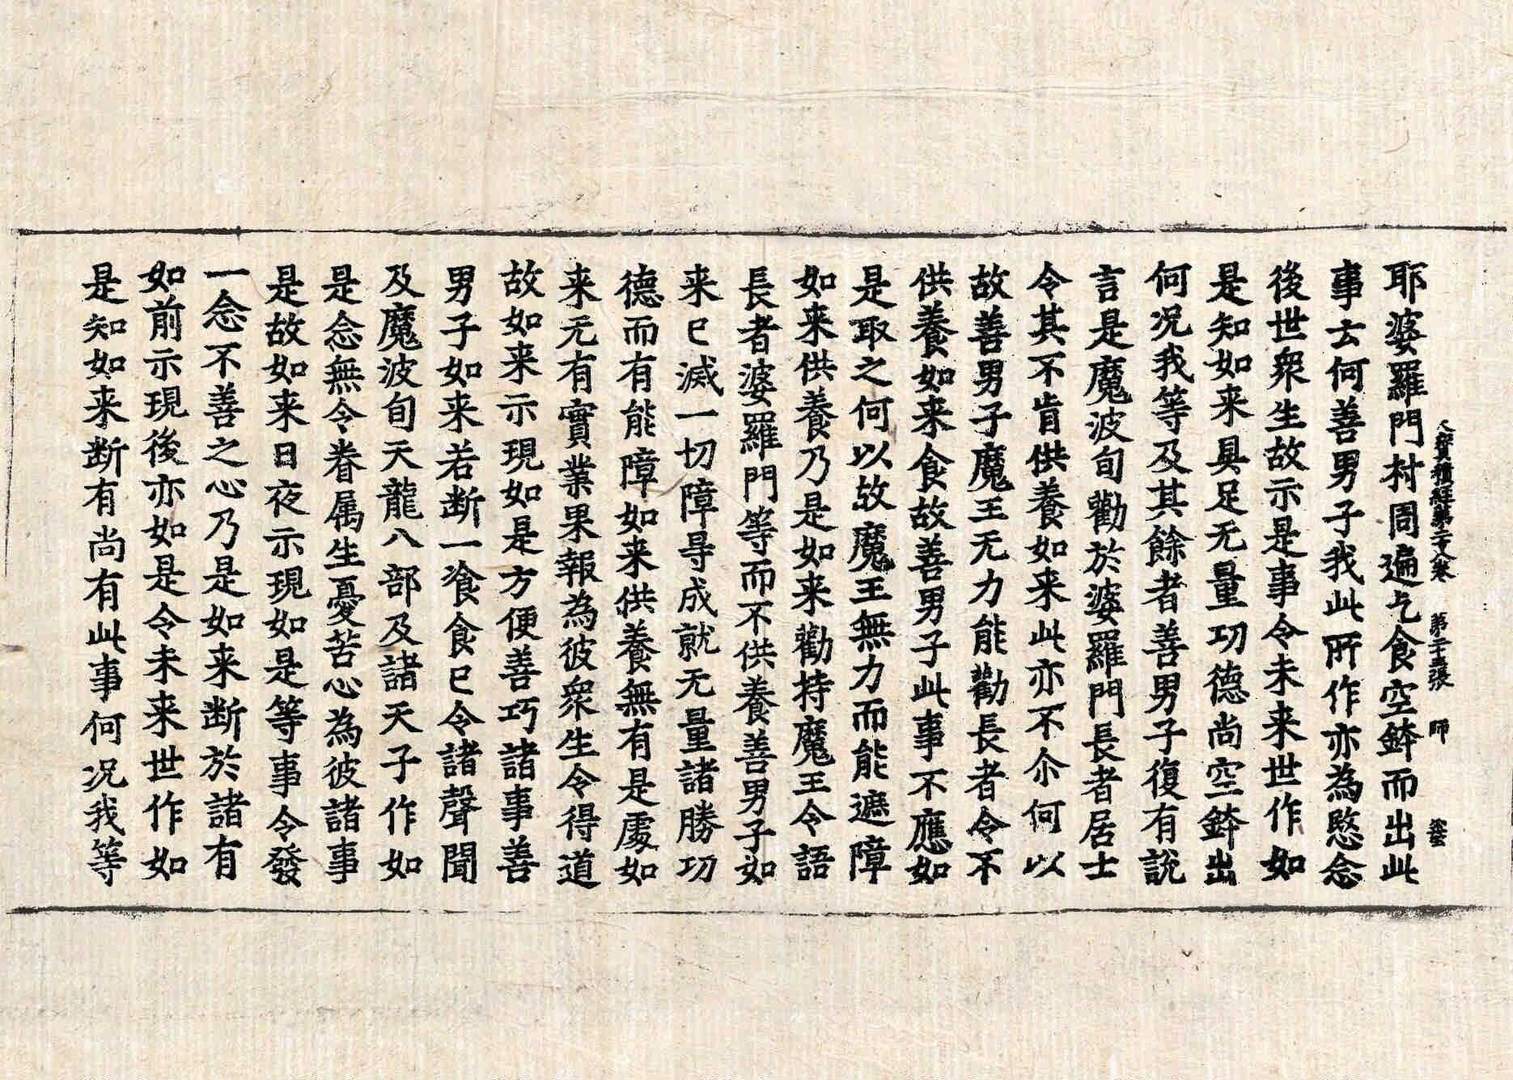 大寳積經第二十八卷 第二十五張 師
耶婆羅門村周遍乞食空鉢而出此
事云何善男子我此所作亦為愍念
後世衆生故示是事令未来世作如
是知如来具足无量功德尚空鉢出
何况我等及其餘者善男子復有說
言是魔波旬勸於婆羅門長者居士
令其不肯供養如来此亦不尒何以
故善男子魔王无力能勸長者令不
供養如来食故善男子此事不應如
是取之何以故魔王無力而能遮障
如来供養乃是如来勸持魔王令語
長者婆羅門等而不供養善男子如
来已滅一切障㝵成就无量諸勝功
德而有能障如来供養無有是處如
来无有實業果報為彼衆生令得道
故如来示現如是方便善巧諸事善
男子如来若断一飡食已令諸聲聞
及魔波旬天龍八部及諸天子作如
是念無令眷属生憂苦心為彼諸事
是故如来日夜示現如是等事令發
一念不善之心乃是如来断於諸有
如前示現後亦如是令未来世作如
是知如来断有尚有此事何况我等